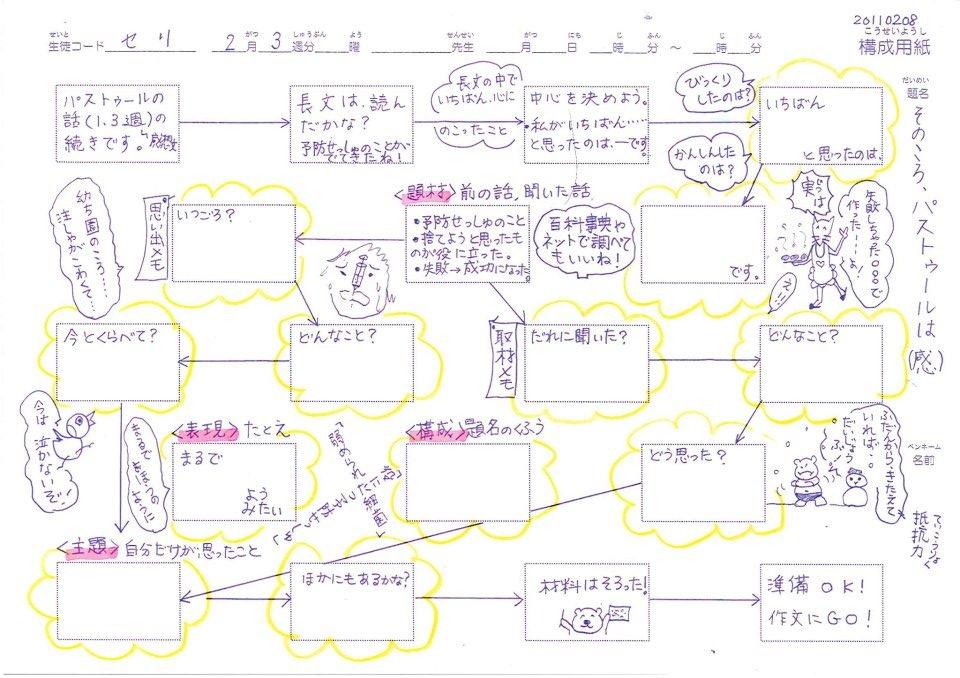 20110208
せいと がつ しゅうぶん よう せんせい がつ にち じ ふん じ ふん こうせいようし
生徒コード セリ 2月3週分 曜 先生 月 日 時 分 ～ 時 分 構成用紙
だいめい
題名
そのころ、パストゥールは(感)
ペンネーム
名前
パストゥールの
話(1.3週)の
続きです。
感想文
長文は、読ん
だかな?
予防せっしゅのことが
でてきたね!
長文の中で
いちばん、心に
のこったこと
中心を決めよう。
・私がいちばん……
と思ったのは、ーです。
びっくり
したのは?
かんしんした
のは?
いちばん
と思ったのは、
です。
実は
失敗しちゃった○○○で
作った……よ!
え!!
<題材>前の話、聞いた話
・予防せっしゅのこと
・捨てようと思ったも
のが役に立った。
・失敗→成功になった。
百科事典や
ネットで調べて
もいいね!
思い出メモ
いつごろ?
幼ち園のころ……
注しゃがこわくて…
どんなこと?
今とくらべて?
今は泣かないぞ!
取材メモ
だれに聞いた?
どんなこと?
どう思った?
ふだんから、きたえて
いれば…。
だいじょうぶ!
ていこうりょく
抵抗力
<表現>たとえ
まるで
よう
みたい
<構成>題名のくふう
<主題>自分だけが思ったこと
ほかにもあるかな?
材料はそろった!
準備OK!
作文にGO!